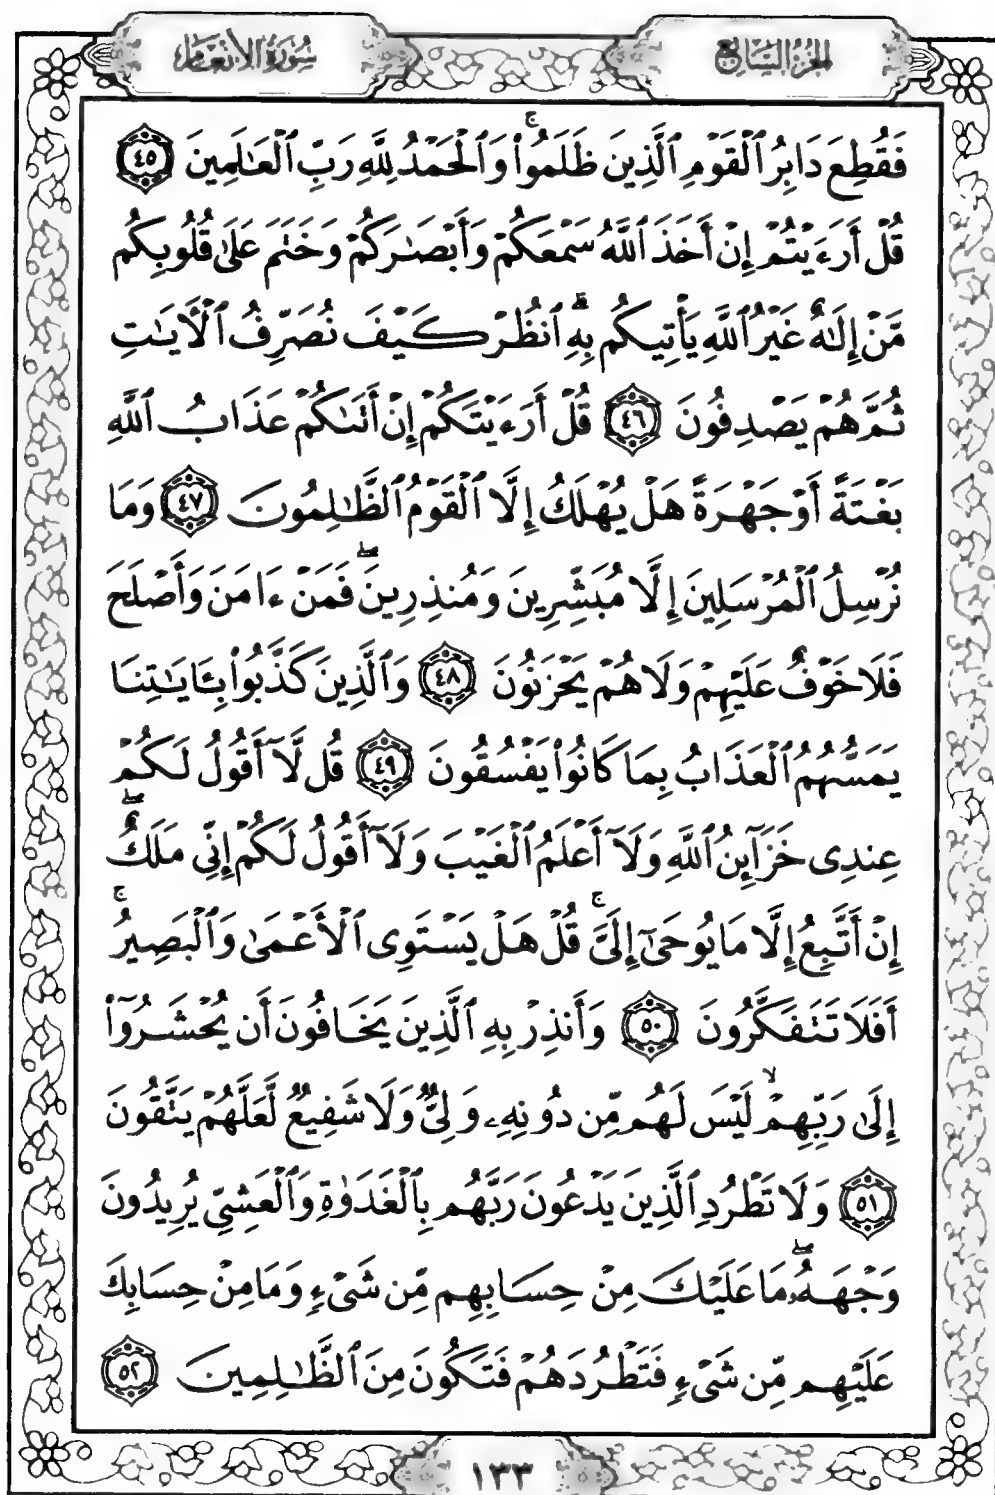 الجزء السابع
سورة الأنعام
فَقُطِعَ دَابِرُ ٱلْقَوْمِ ٱلَّذِينَ ظَلَمُوا۟ۚ وَٱلْحَمْدُ لِلَّهِ رَبِّ ٱلْعَـٰلَمِينَ ٤٥
قُلْ أَرَءَيْتُمْ إِنْ أَخَذَ ٱللَّهُ سَمْعَكُمْ وَأَبْصَـٰرَكُمْ وَخَتَمَ عَلَىٰ قُلُوبِكُم
مَّنْ إِلَـٰهٌ غَيْرُ ٱللَّهِ يَأْتِيكُم بِهِۗ ٱنظُرْ كَيْفَ نُصَرِّفُ ٱلْـَٔايَـٰتِ
ثُمَّ هُمْ يَصْدِفُونَ ٤٦ قُلْ أَرَءَيْتَكُمْ إِنْ أَتَىٰكُمْ عَذَابُ ٱللَّهِ
بَغْتَةً أَوْ جَهْرَةً هَلْ يُهْلَكُ إِلَّا ٱلْقَوْمُ ٱلظَّـٰلِمُونَ ٤٧ وَمَا
نُرْسِلُ ٱلْمُرْسَلِينَ إِلَّا مُبَشِّرِينَ وَمُنذِرِينَۖ فَمَنْ ءَامَنَ وَأَصْلَحَ
فَلَا خَوْفٌ عَلَيْهِمْ وَلَا هُمْ يَحْزَنُونَ ٤٨ وَٱلَّذِينَ كَذَّبُوا۟ بِـَٔايَـٰتِنَا
يَمَسُّهُمُ ٱلْعَذَابُ بِمَا كَانُوا۟ يَفْسُقُونَ ٤٩ قُل لَّآ أَقُولُ لَكُمْ
عِندِى خَزَآئِنُ ٱللَّهِ وَلَآ أَعْلَمُ ٱلْغَيْبَ وَلَآ أَقُولُ لَكُمْ إِنِّى مَلَكٌۖ
إِنْ أَتَّبِعُ إِلَّا مَا يُوحَىٰٓ إِلَىَّۚ قُلْ هَلْ يَسْتَوِى ٱلْأَعْمَىٰ وَٱلْبَصِيرُۚ
أَفَلَا تَتَفَكَّرُونَ ٥٠ وَأَنذِرْ بِهِ ٱلَّذِينَ يَخَافُونَ أَن يُحْشَرُوٓا۟
إِلَىٰ رَبِّهِمْۙ لَيْسَ لَهُم مِّن دُونِهِۦ وَلِىٌّ وَلَا شَفِيعٌ لَّعَلَّهُمْ يَتَّقُونَ
٥١ وَلَا تَطْرُدِ ٱلَّذِينَ يَدْعُونَ رَبَّهُم بِٱلْغَدَوٰةِ وَٱلْعَشِىِّ يُرِيدُونَ
وَجْهَهُۥۖ مَا عَلَيْكَ مِنْ حِسَابِهِم مِّن شَىْءٍ وَمَا مِنْ حِسَابِكَ
عَلَيْهِم مِّن شَىْءٍ فَتَطْرُدَهُمْ فَتَكُونَ مِنَ ٱلظَّـٰلِمِينَ ٥٢
١٣٣